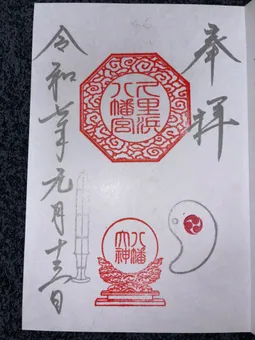 奉拝
久里浜
八幡宮
八幡
大神
令和七年元月十三日